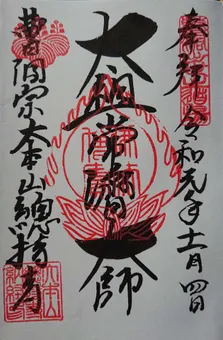 奉拝 令和元年十一月四日
太祖常済大師
曹洞宗大本山總持寺